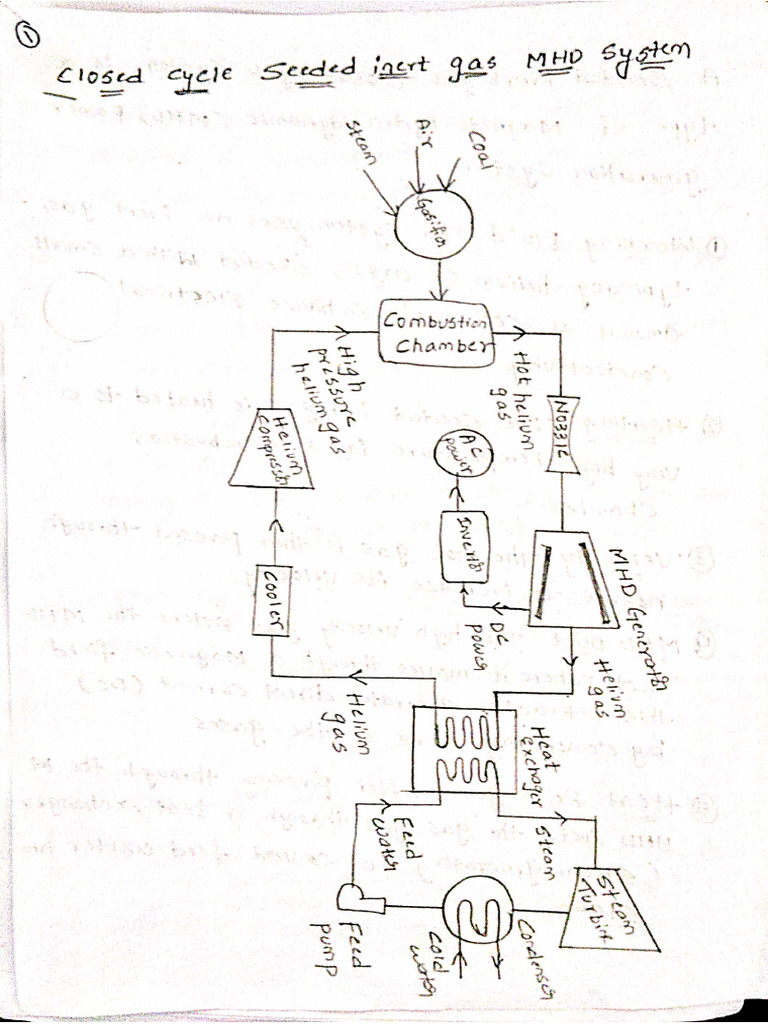 ①
Closed cycle Seeded inert gas MHD System
Steam
Air
Coal
Gasifier
Combustion
Chamber
High
pressure
helium gas
Hot helium
gas
Helium
Compressor
AC
power
Inverter
MHD Generator
DC
power
Cooler
Helium
gas
Helium
gas
Heat
exchager
Steam
Feed
water
Steam
Turbine
Feed
pump
Cold
water
Condenser